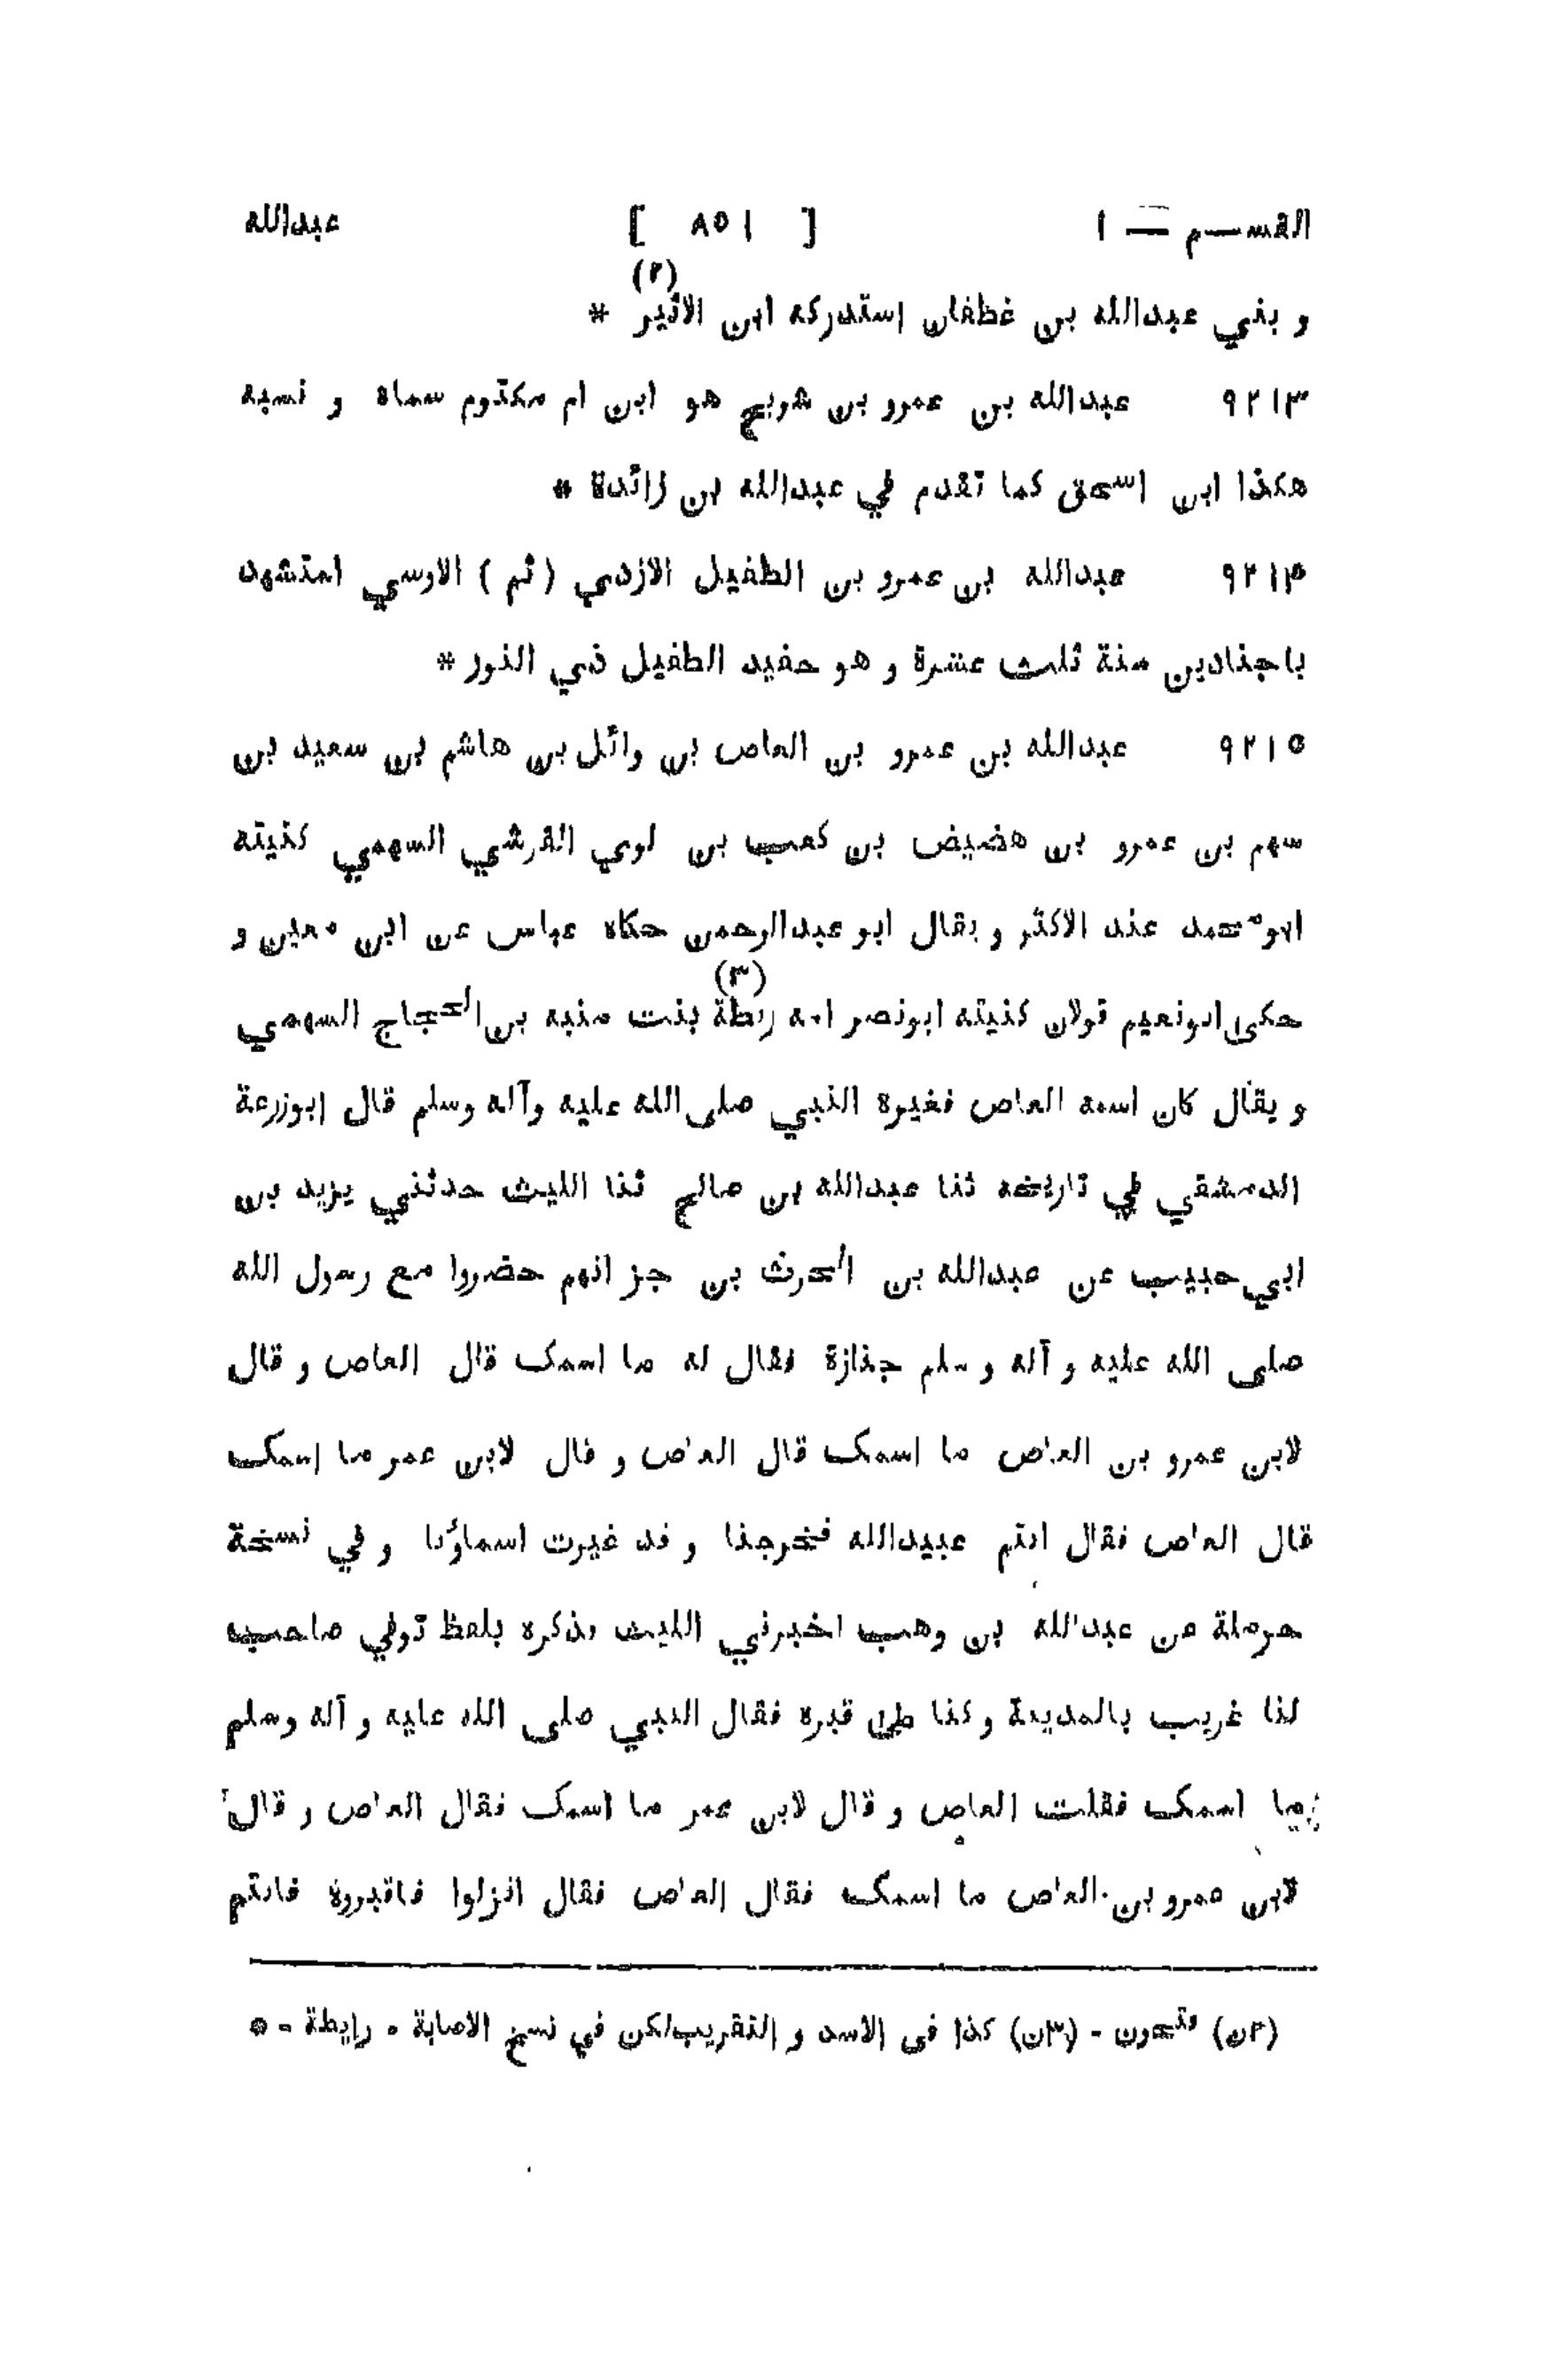 القســم — ١ [ ٨٥١ ] عبدالله
و بني عبدالله بن غطفان استدركه ابن الاثير (٢) *
٩٢١٣ عبدالله بن عمرو بن شريح هو ابن ام مكتوم سماه و نسبه
هكذا ابن اسحق كما تقدم في عبدالله بن زائدة *
٩٢١٤ عبدالله بن عمرو بن الطفيل الازدي ( ثم ) الاوسي استشهد
باجنادين سنة ثلث عشرة و هو حفيد الطفيل ذي النور *
٩٢١٥ عبدالله بن عمرو بن العاص بن وائل بن هاشم بن سعيد بن
سهم بن عمرو بن هضيض بن كعب بن لوي القرشي السهمي كنيته
ابومحمد عند الاكثر و يقال ابو عبدالرحمن حكاه عباس عن ابن معين و
حكى ابونعيم قولان كنيته ابونصر امه ريطة (٣) بنت منبه بن الحجاج السهمي
و يقال كان اسمه العاص فغيره النبي صلى الله عليه وآله وسلم قال ابوزرعة
الدمشقي في تاريخه ثنا عبدالله بن صالح ثنا الليث حدثني يزيد بن
ابي حبيب عن عبدالله بن الحرث بن جز انهم حضروا مع رسول الله
صلى الله عليه و آله و سلم جنازة فقال له ما اسمك قال العاص و قال
لابن عمرو بن العاص ما اسمك قال العاص و قال لابن عمر ما اسمك
قال العاص فقال انتم عبيدالله فخرجنا و قد غيرت اسماؤنا و في نسخة
حرملة عن عبدالله بن وهب اخبرني الليث فذكره بلفظ توفي صاحب
لنا غريب بالمدينة و كنا على قبره فقال النبي صلى الله عليه و آله وسلم
ما اسمك فقلت العاص و قال لابن عمر ما اسمك فقال العاص و قال
لابن عمرو بن العاص ما اسمك فقال العاص فقال انزلوا فاقبروه فانتم
(٢ن) فتحون - (٣ن) كذا فى الاسد و التقريب لكن في نسخ الاصابة - رايطة - *